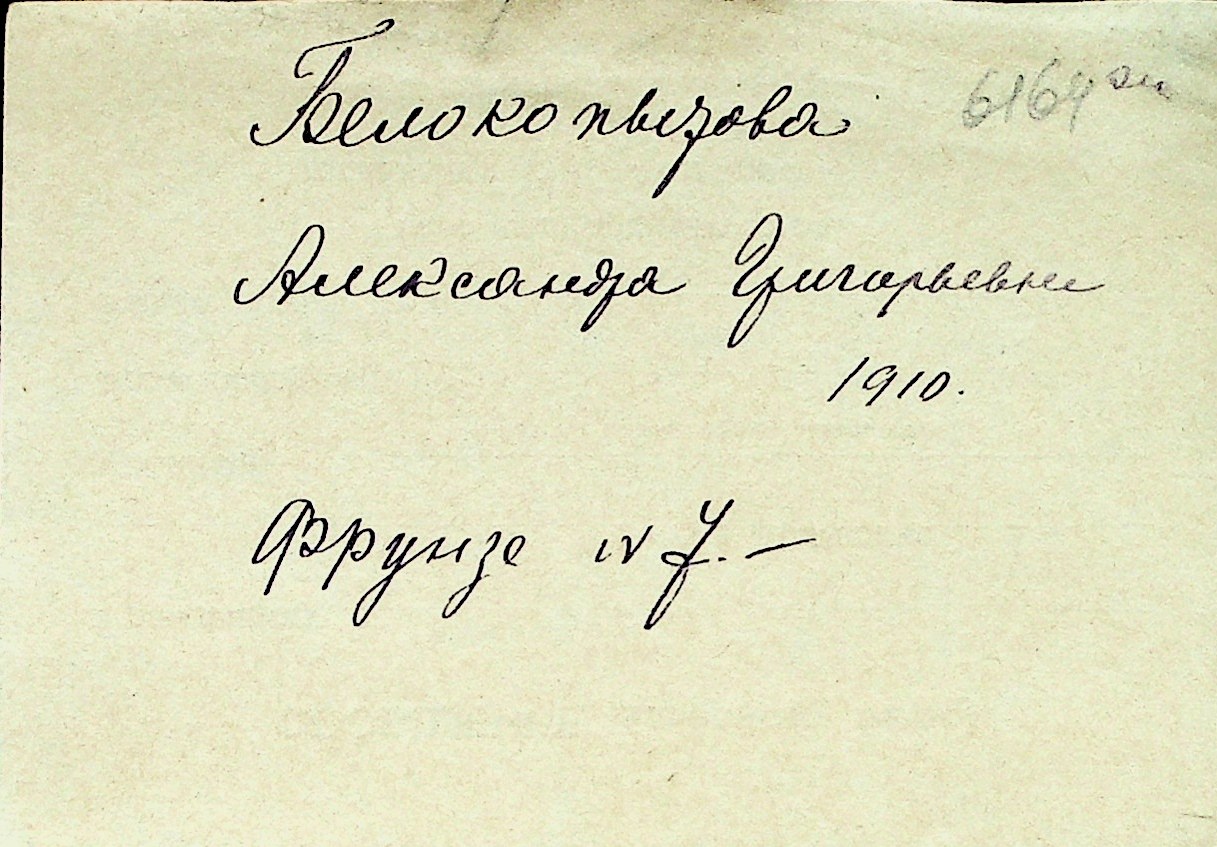 Белокопызова 6164
Александра Григорьевна
1910.
Фрунзе N 7. —